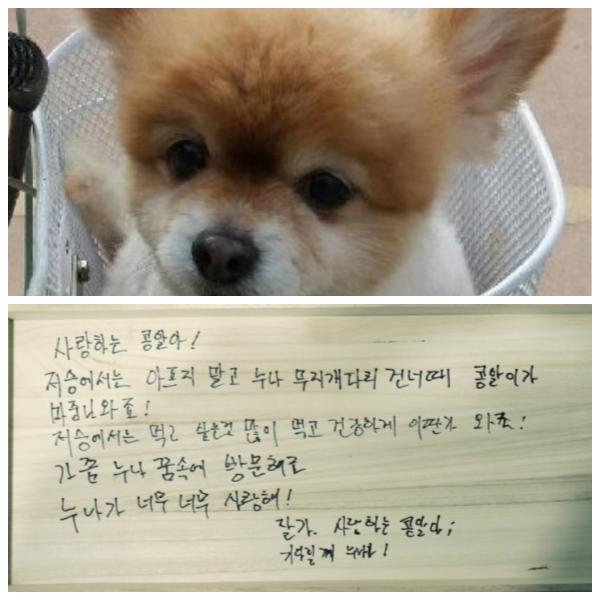 사랑하는 콩알아!
저승에서는 아프지 말고 누나 무지개다리 건너때 콩알이가
마중나와죠!
저승에서는 먹고 싶은것 많이 먹고 건강하게 있다가 와죠!
가끔 누나 꿈속에 방문해죠
누나가 너무 너무 사랑해!
잘가. 사랑하는 콩알아;
기다릴께 누나가!